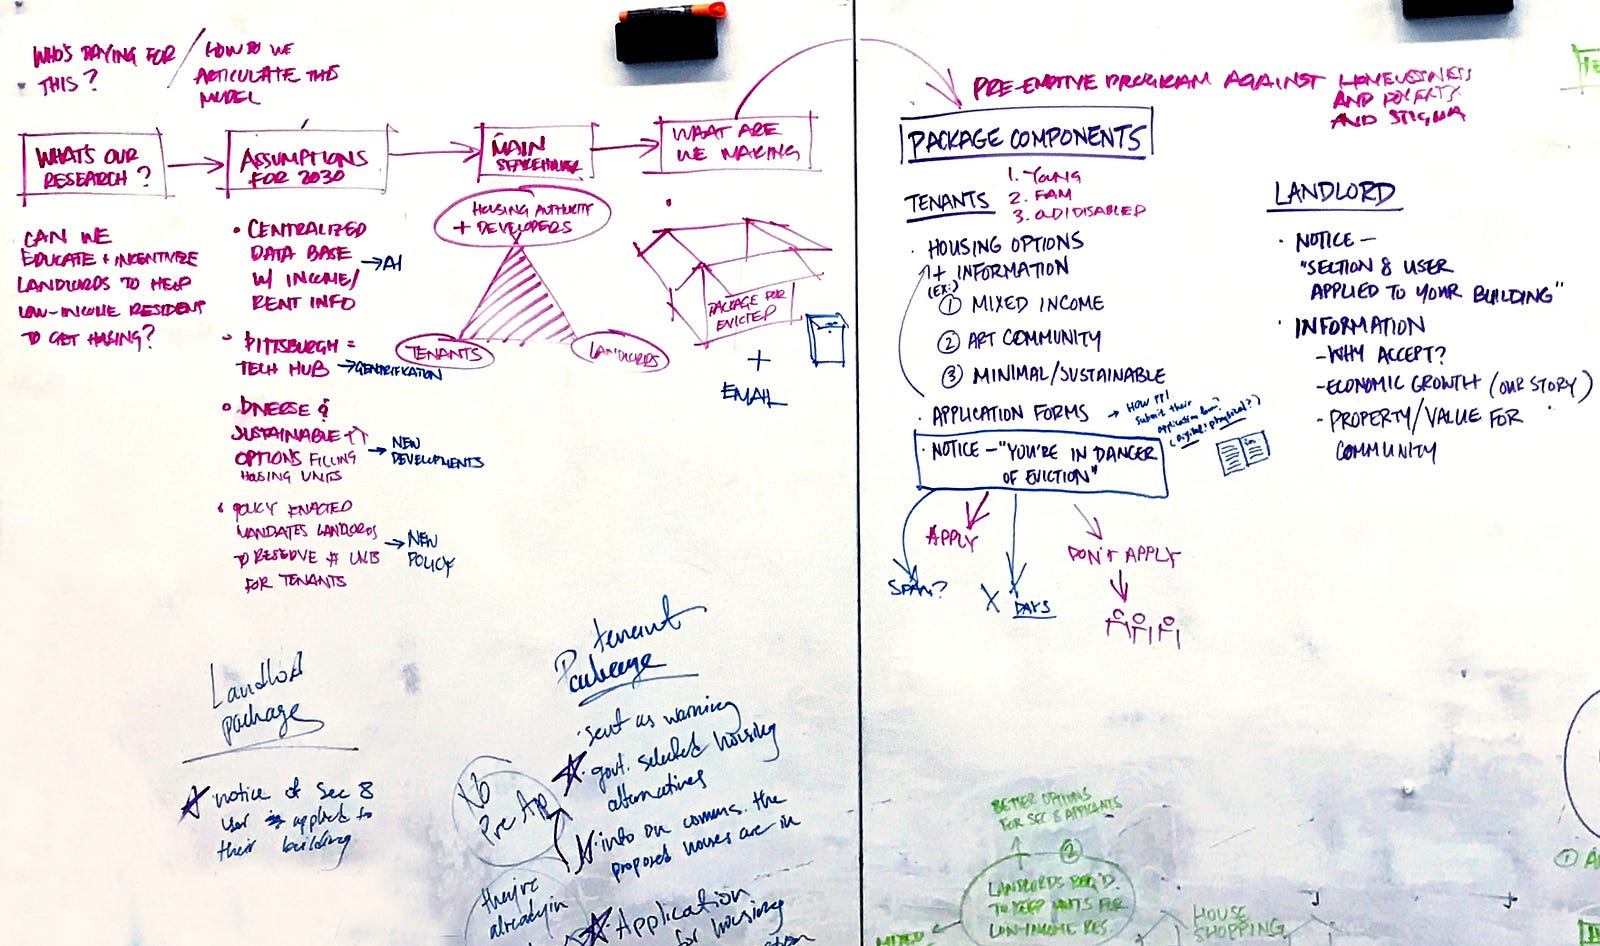 WHO'S PAYING FOR
THIS?
/ HOW DO WE
ARTICULATE THIS
MODEL
WHAT'S OUR
RESEARCH?
ASSUMPTIONS
FOR 2030
MAIN
STAKEHOLDER
WHAT ARE
WE MAKING
CAN WE
EDUCATE + INCENTIVIZE
LANDLORDS TO HELP
LOW-INCOME RESIDENT
TO GET HOUSING?
• CENTRALIZED
DATA BASE → AI
W/ INCOME/
RENT INFO
• PITTSBURGH =
TECH HUB → GENTRIFICATION
• DIVERSE &
SUSTAINABLE
OPTIONS FILLING → NEW DEVELOPMENTS
HOUSING UNITS
• POLICY ENACTED
MANDATES LANDLORDS
TO RESERVE # UNITS → NEW POLICY
FOR TENANTS
HOUSING AUTHORITY
+ DEVELOPERS
TENANTS
LANDLORDS
PACKAGE FOR
EVICTED
+
EMAIL
PRE-EMPTIVE PROGRAM AGAINST HOMELESSNESS
AND POVERTY
AND STIGMA
PACKAGE COMPONENTS
TENANTS
1. YOUNG
2. FAM
3. OLD/DISABLED
• HOUSING OPTIONS
+ INFORMATION
(EX:)
① MIXED INCOME
② ART COMMUNITY
③ MINIMAL/SUSTAINABLE
• APPLICATION FORMS → HOW PPL
submit their
application form?
(digital? physical?)
• NOTICE – "YOU'RE IN DANGER
OF EVICTION"
SPAM?
APPLY
X DAYS
DON'T APPLY
LANDLORD
• NOTICE –
"SECTION 8 USER
APPLIED TO YOUR BUILDING"
• INFORMATION
– WHY ACCEPT?
– ECONOMIC GROWTH (OUR STORY)
– PROPERTY/VALUE FOR
COMMUNITY
Landlord
package
notice of Sec 8
user applied to
their building
tenant
Package
• sent as warning
• govt. selected housing
alternatives
• info on comms. the
proposed houses are in
• Application
for housing
No
Pre App
they're
already in
BETTER OPTIONS
FOR SEC 8 APPLICANTS
②
LANDLORDS REQ'D.
TO KEEP UNITS FOR
LOW-INCOME RES.
MIXED
HOUSE
SHOPPING
①